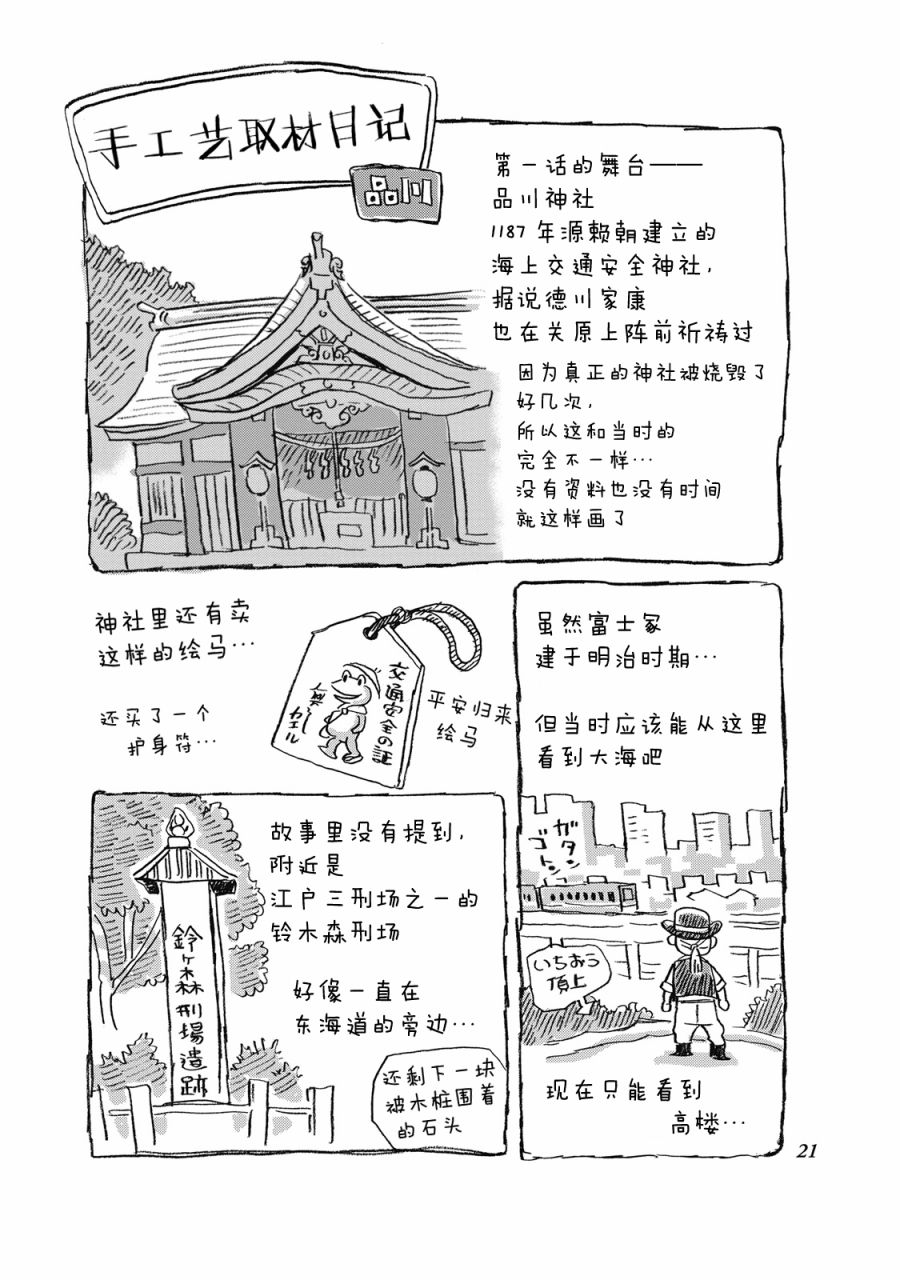 手工艺取材日记
品川
第一话的舞台——
品川神社
1187年源赖朝建立的
海上交通安全神社，
据说德川家康
也在关原上阵前祈祷过
因为真正的神社被烧毁了
好几次，
所以这和当时的
完全不一样…
没有资料也没有时间
就这样画了
神社里还有卖
这样的绘马…
还买了一个
护身符…
交通安全の証
カエル
平安归来
绘马
虽然富士冢
建于明治时期…
但当时应该能从这里
看到大海吧
ガタン
ゴトン
いちおう
頂上
现在只能看到
高楼…
故事里没有提到，
附近是
江户三刑场之一的
铃木森刑场
好像一直在
东海道的旁边…
鈴ヶ森刑場遺跡
还剩下一块
被木桩围着
的石头
21